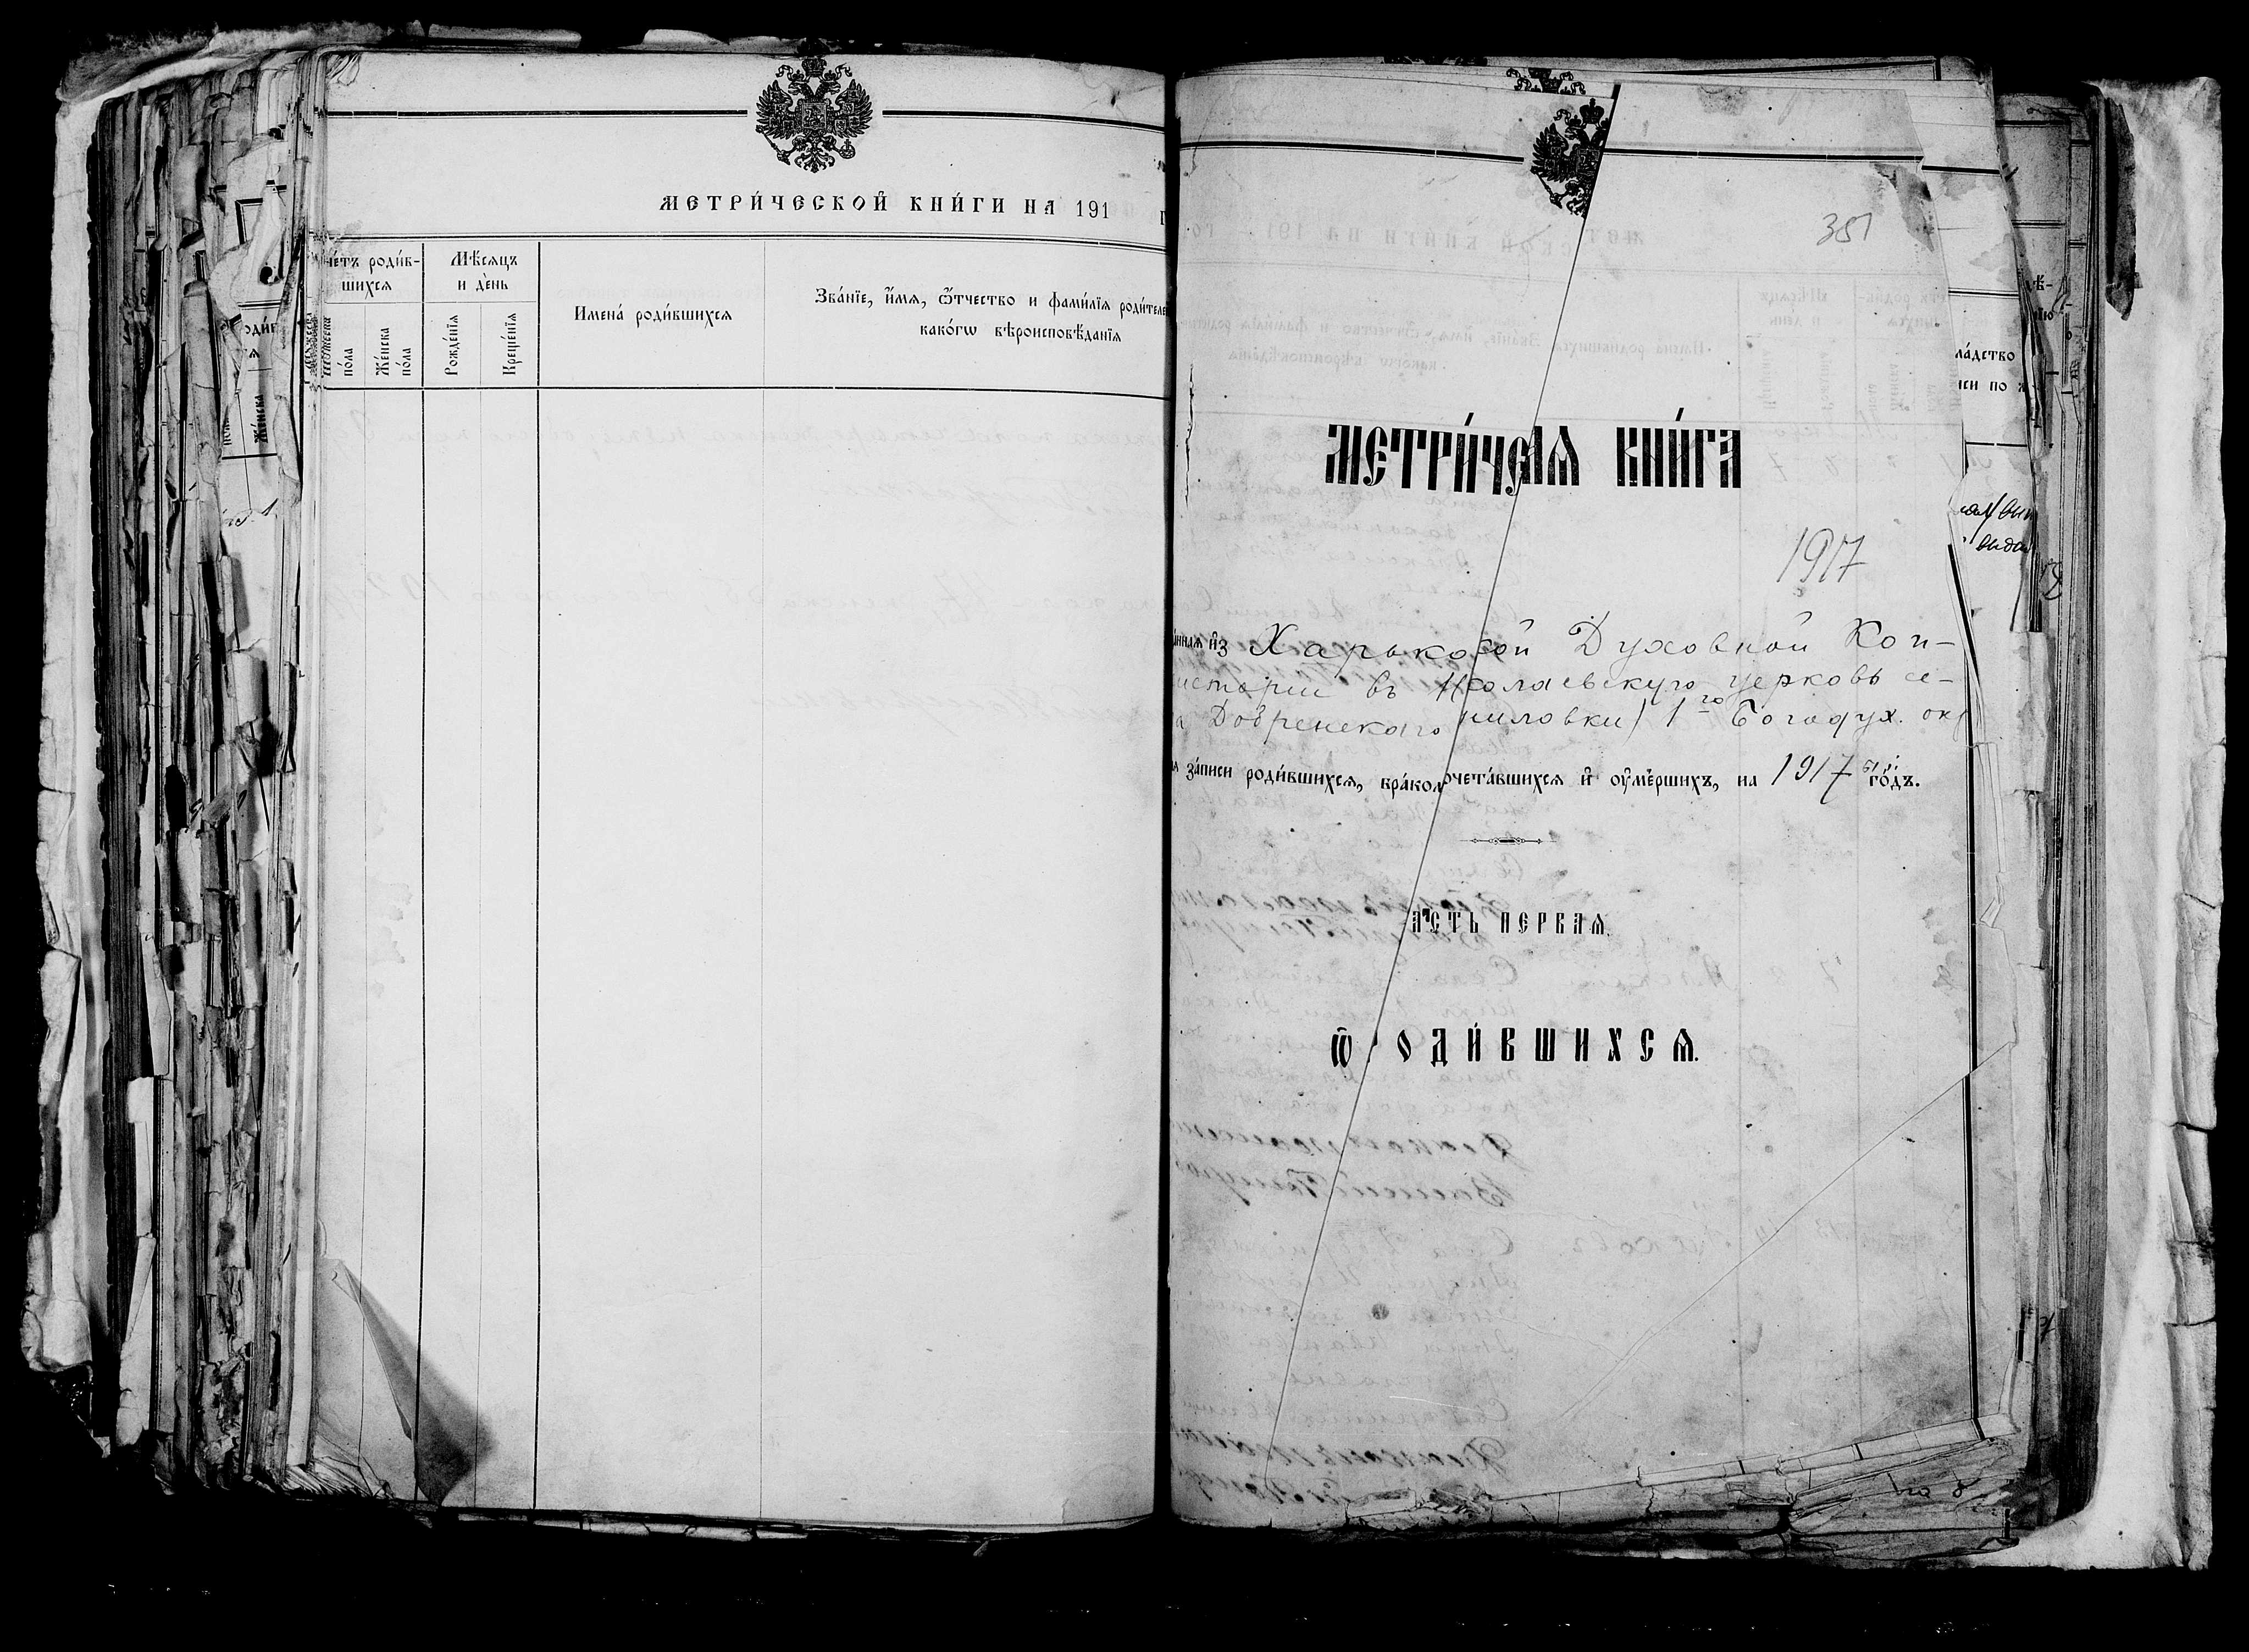 МЕТРИ́ЧЕСКОЙ КНИ́ГИ НА 191
че́тъ роди́в-
шихсѧ
Мѣ́сѧцъ
и де́нь
Имена̀ роди́вшихсѧ
Зва́нїе, и́мѧ, ѿтчество и фами́лїѧ роди́теле
како́гѡ вѣроисповѣ́данїѧ
по́ла
Же́нска
по́ла
Рожде́нїѧ
Креще́нїѧ
351
МЕТРИ́ЧЕ АѦ КНИ́ГА
1917
анная из Харько ой Духовной Кон-
систории въ Николаевскую церковь се-
а Добренскаго пиловки) 1го Богодух. окр
ѧ за́писи роди́вшихсѧ, бра́ко очета́вшихсѧ и ѹме́ршихъ, на 1917ый го́дъ.
ЧА́СТЬ ПЕРВАѦ.
Ѡ ОДИ́ВШИХСѦ.